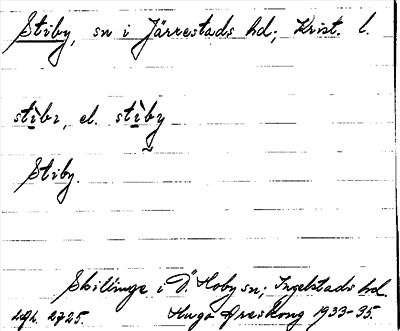 Stiby, sn i Järrestads hd; Krist. l.
stìbı, el. stìby
Stiby.
Skillinge i Ö. Hoby sn; Ingelstads hd.
2725. Hugo Areskoug 1933-35.